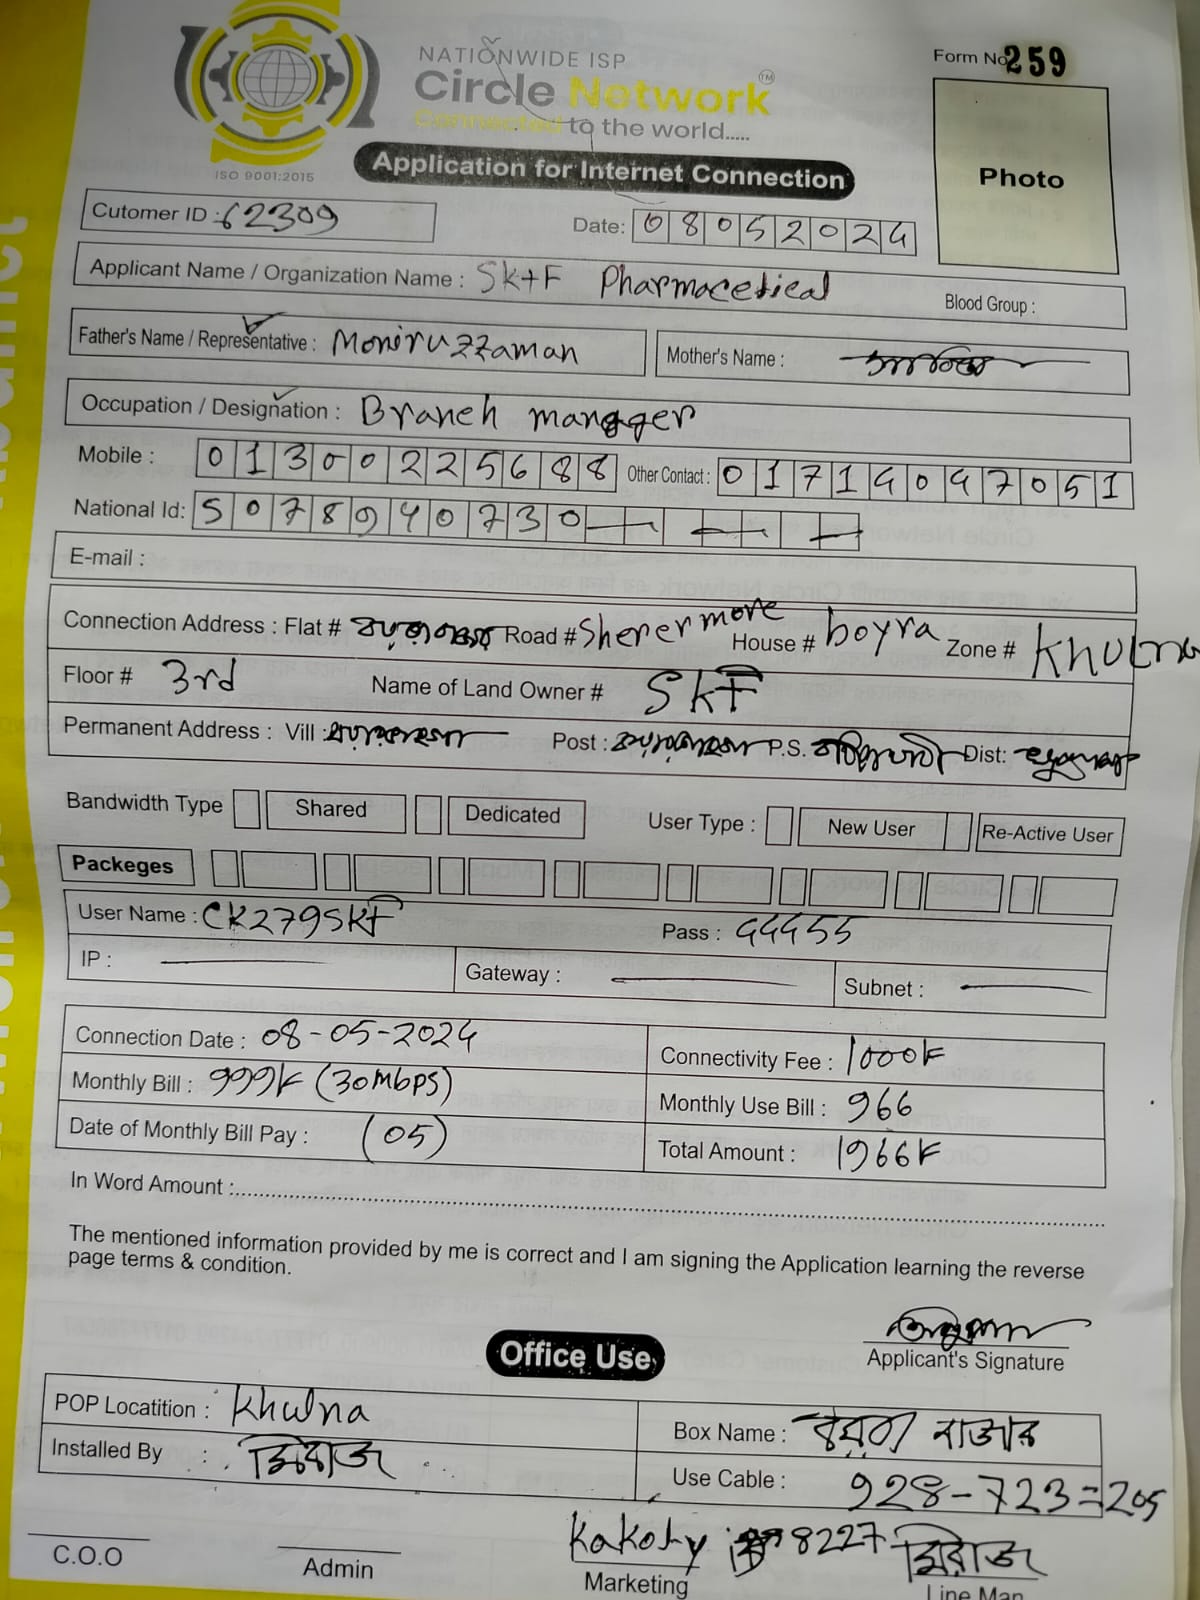 NATIONWIDE ISP
Circle Network™
Connected to the world.....
ISO 9001:2015
Form No 259
Photo
Application for Internet Connection
Cutomer ID : 62309
Date: 08052024
Applicant Name / Organization Name : Sk+F Pharmacetical
Blood Group :
Father's Name / Representative : Moniruzzaman
Mother's Name :
Occupation / Designation : Branch manager
Mobile : 01300225688 Other Contact : 01714047051
National Id: 5078940730
E-mail :
Connection Address : Flat # Road # Sherer more House # boyra Zone # Khulna
Floor # 3rd Name of Land Owner # SKF
Permanent Address : Vill : Post : P.S. Dist:
Bandwidth Type Shared Dedicated User Type : New User Re-Active User
Packeges
User Name : CK279SKF Pass : 44455
IP : Gateway : Subnet :
Connection Date : 08-05-2024 Connectivity Fee : 1000/=
Monthly Bill : 999/= (30Mbps) Monthly Use Bill : 966
Date of Monthly Bill Pay : (05) Total Amount : 1966/=
In Word Amount :
The mentioned information provided by me is correct and I am signing the Application learning the reverse
page terms & condition.
Applicant's Signature
Office Use
POP Locatition : Khulna Box Name : বয়রা বাজার
Installed By : মিরাজ Use Cable : 928-723=205
Kakoly 8227 মিরাজ
C.O.O Admin Marketing Line Man